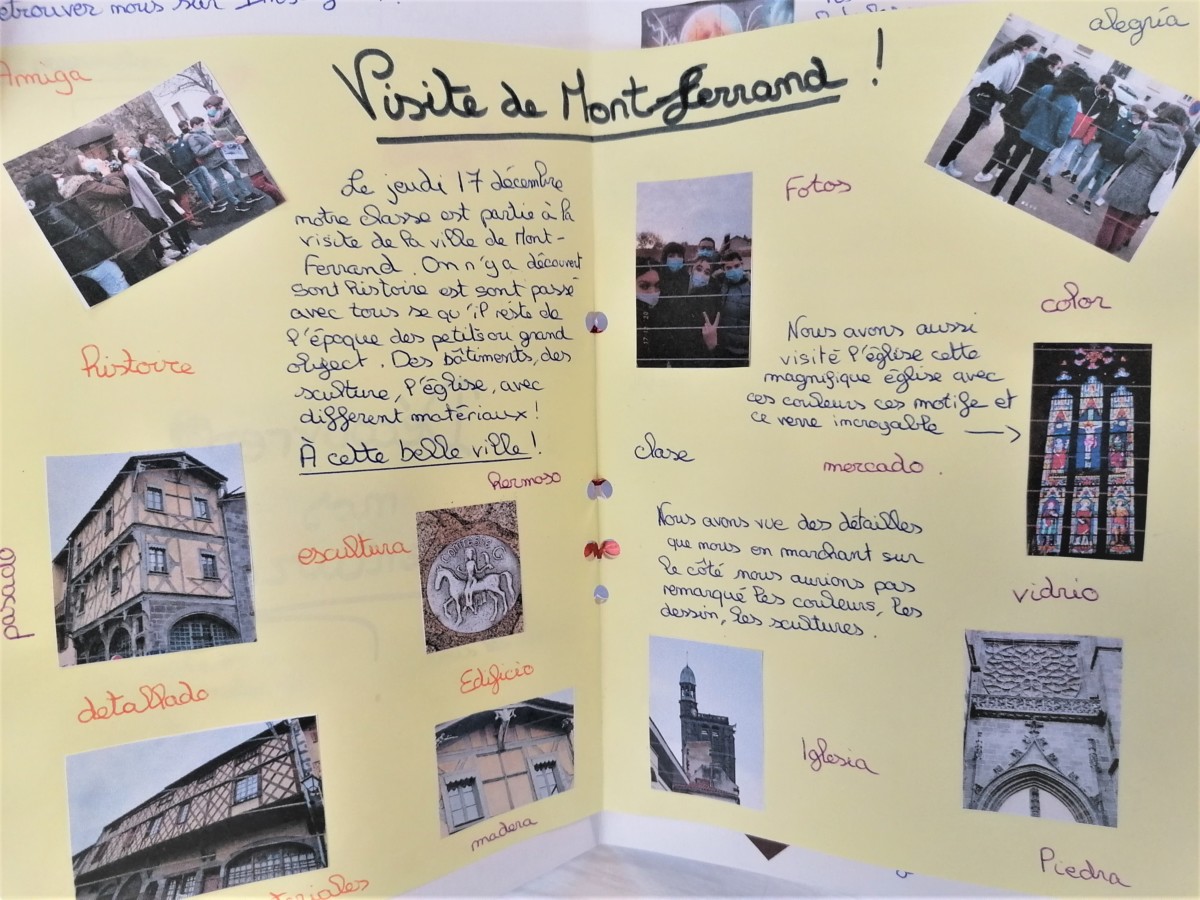 etrouver nous sur
alegría
Amiga
Visite de Mont-Ferrand !
Le jeudi 17 décembre
notre classe est partie à la
visite de la ville de Mont-
Ferrand. On n'y a découvert
sont histoire est sont passé
avec tous se qu'il reste de
l'époque des petits ou grand
object. Des bâtiments, des
sculture, l'église, avec
different matériaux !
À cette belle ville !
histoire
hermoso
escultura
pasado
detallado
Edificio
madera
teriales
Fotos
color
Nous avons aussi
visité l'église cette
magnifique église avec
ces couleurs ces motifs et
ce verre incroyable →
clase
mercado.
Nous avons vue des détailles
que nous en marchant sur
le côté nous aurions pas
remarqué les couleurs, les
dessin, les scultures.
vidrio
Iglesia
Piedra